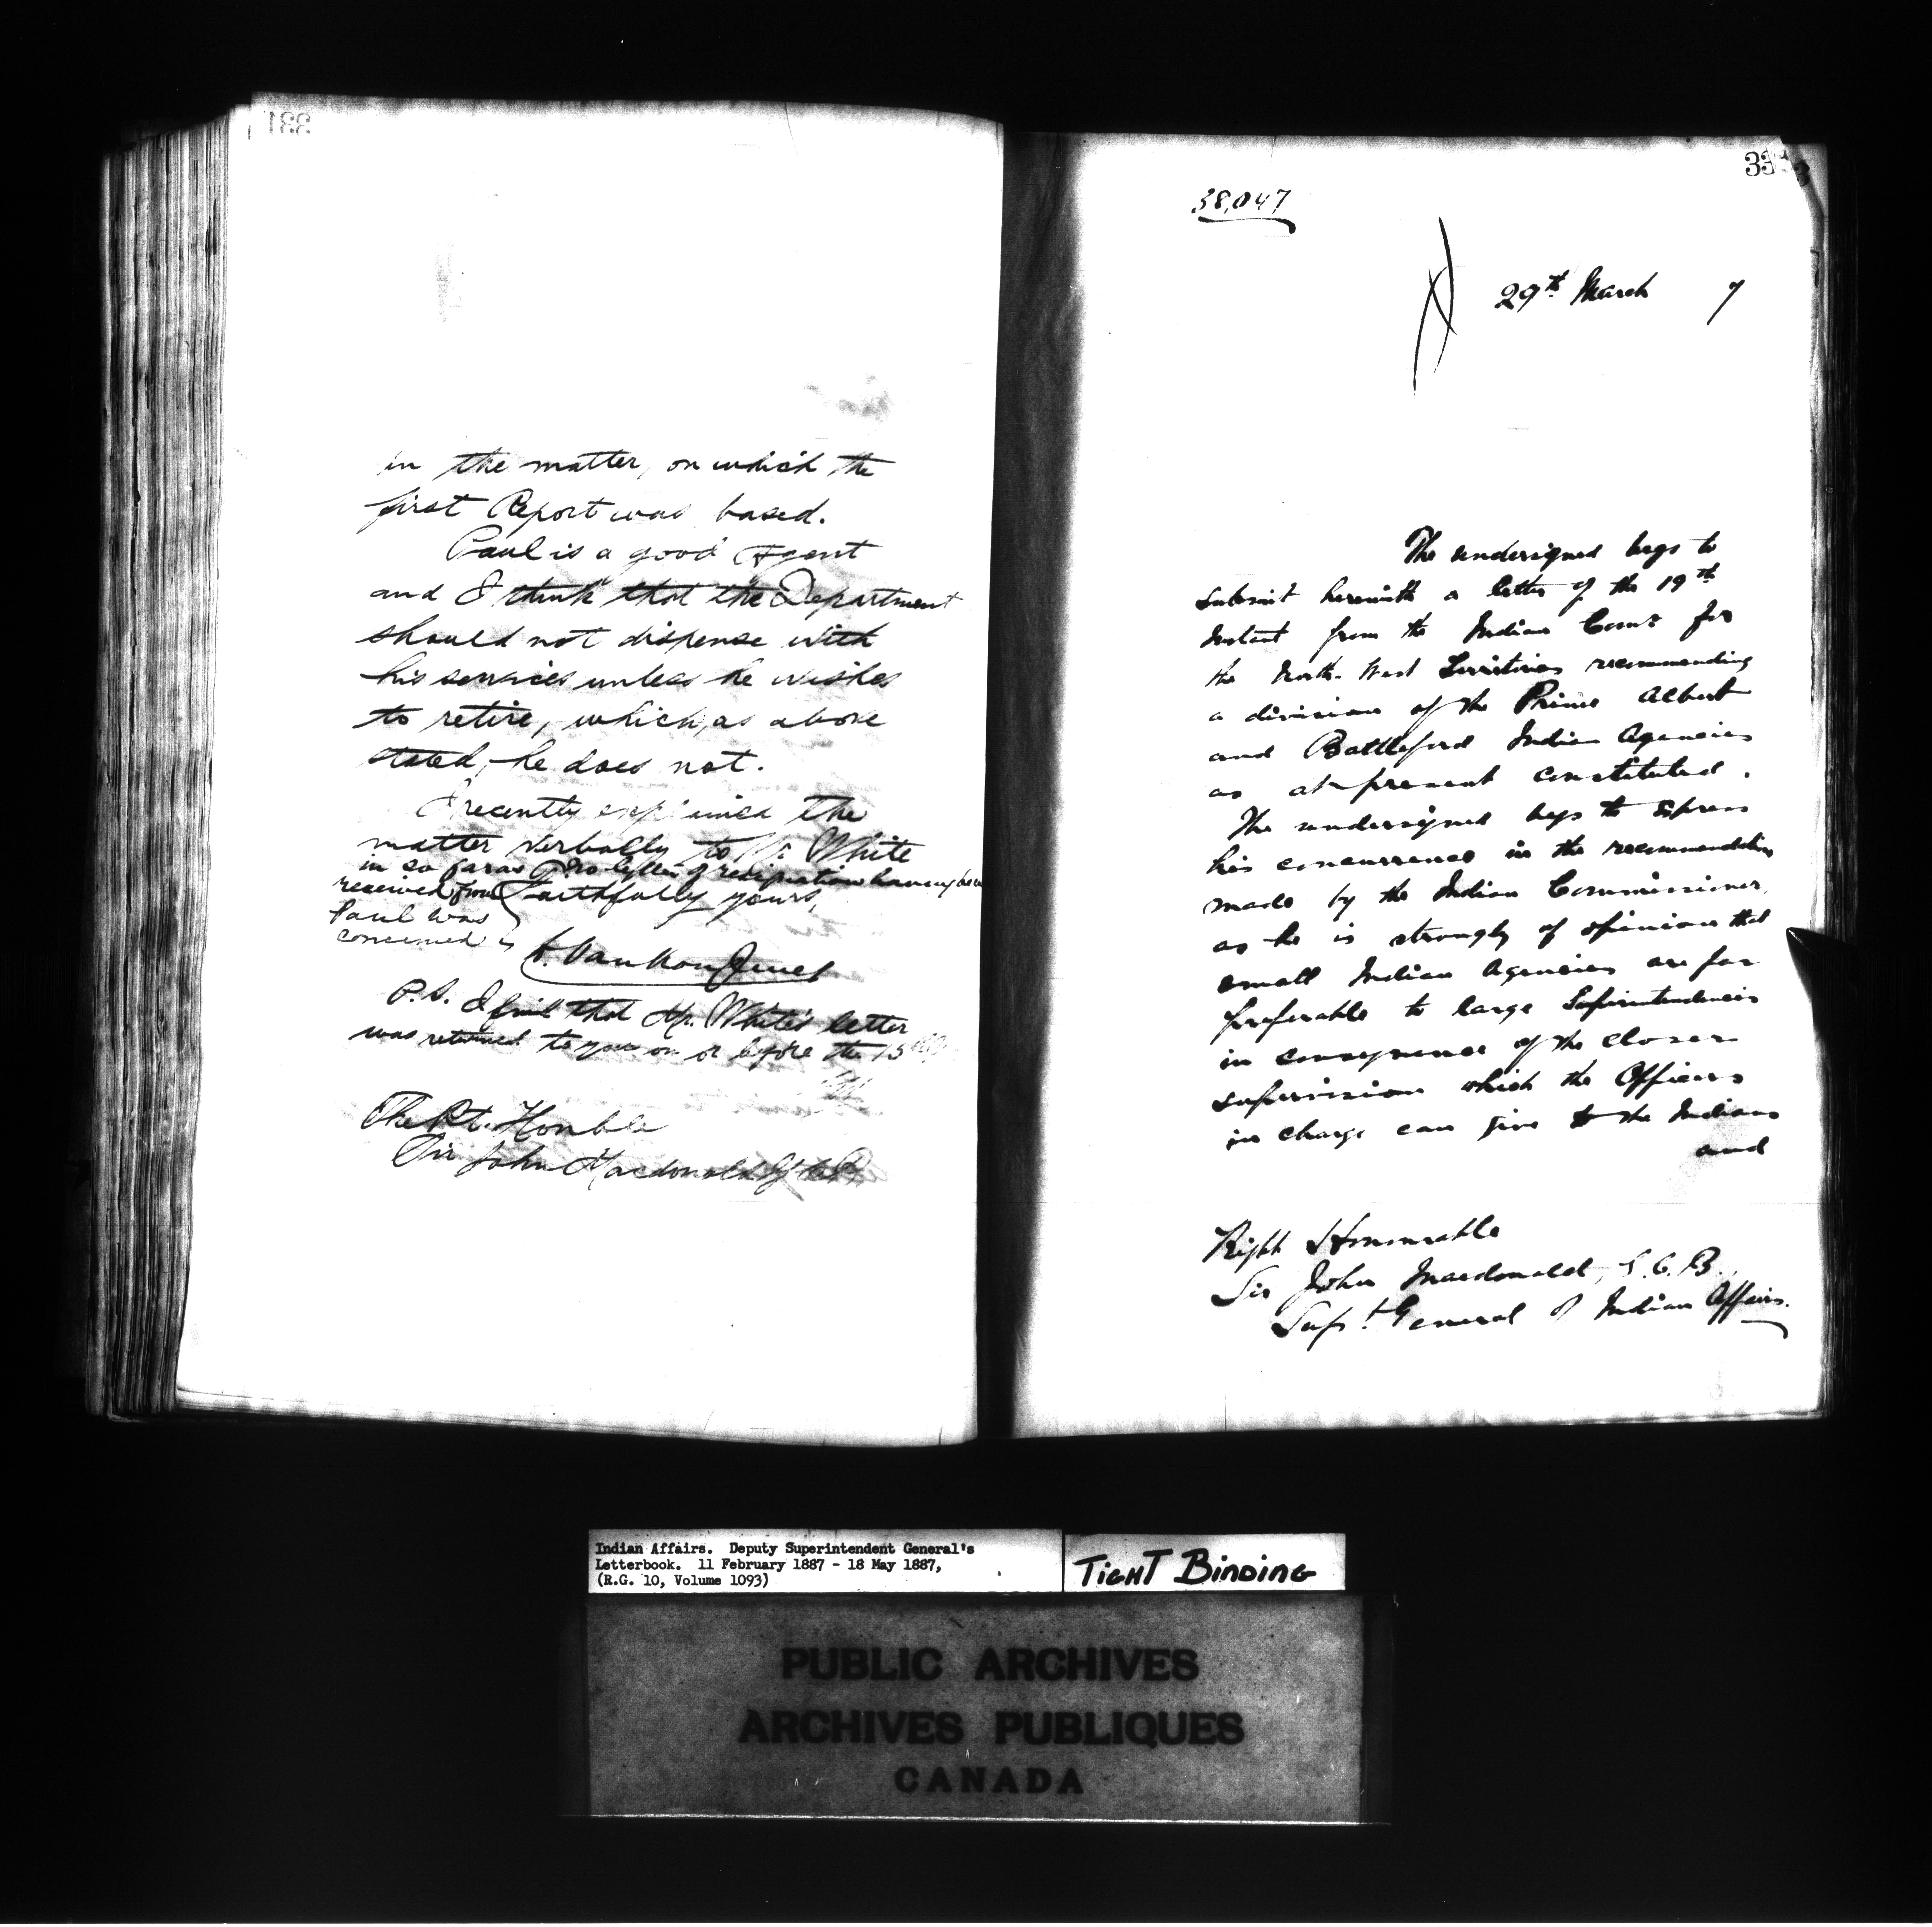 331
in the matter, on which the
first Report was based.
Paul is a good Agent
and I think that the Department
should not dispense with
his services unless he wishes
to retire, which, as above
stated, he does not.
I recently explained the
matter verbally to Mr. White
in so far as no letter of resignation having been
received from
Paul was
concerned
Faithfully yours,
L. VanKoughnet
P.S. I find that Mr. White's letter
was returned to you on or before the 15
The Rt. Honble
Sir John Macdonald G.C.B.
38,047
29th March 7
The undersigned begs to
submit herewith a letter of the 19th
Instant from the Indian Comr for
the North-West Territories recommending
a division of the Prince Albert
and Battleford Indian Agencies
as at present constituted.
The undersigned begs to express
his concurrence in the recommendation
made by the Indian Commissioner,
as he is strongly of opinion that
small Indian Agencies are far
preferable to large Superintendencies
in consequence of the closer
supervision which the Officers
in charge can give to the Indians
and
Right Honourable
Sir John Macdonald, G.C.B.,
Supt. General of Indian Affairs.
Indian Affairs. Deputy Superintendent General's
Letterbook. 11 February 1887 - 18 May 1887,
(R.G. 10, Volume 1093)
TIGHT BINDING
PUBLIC ARCHIVES
ARCHIVES PUBLIQUES
CANADA